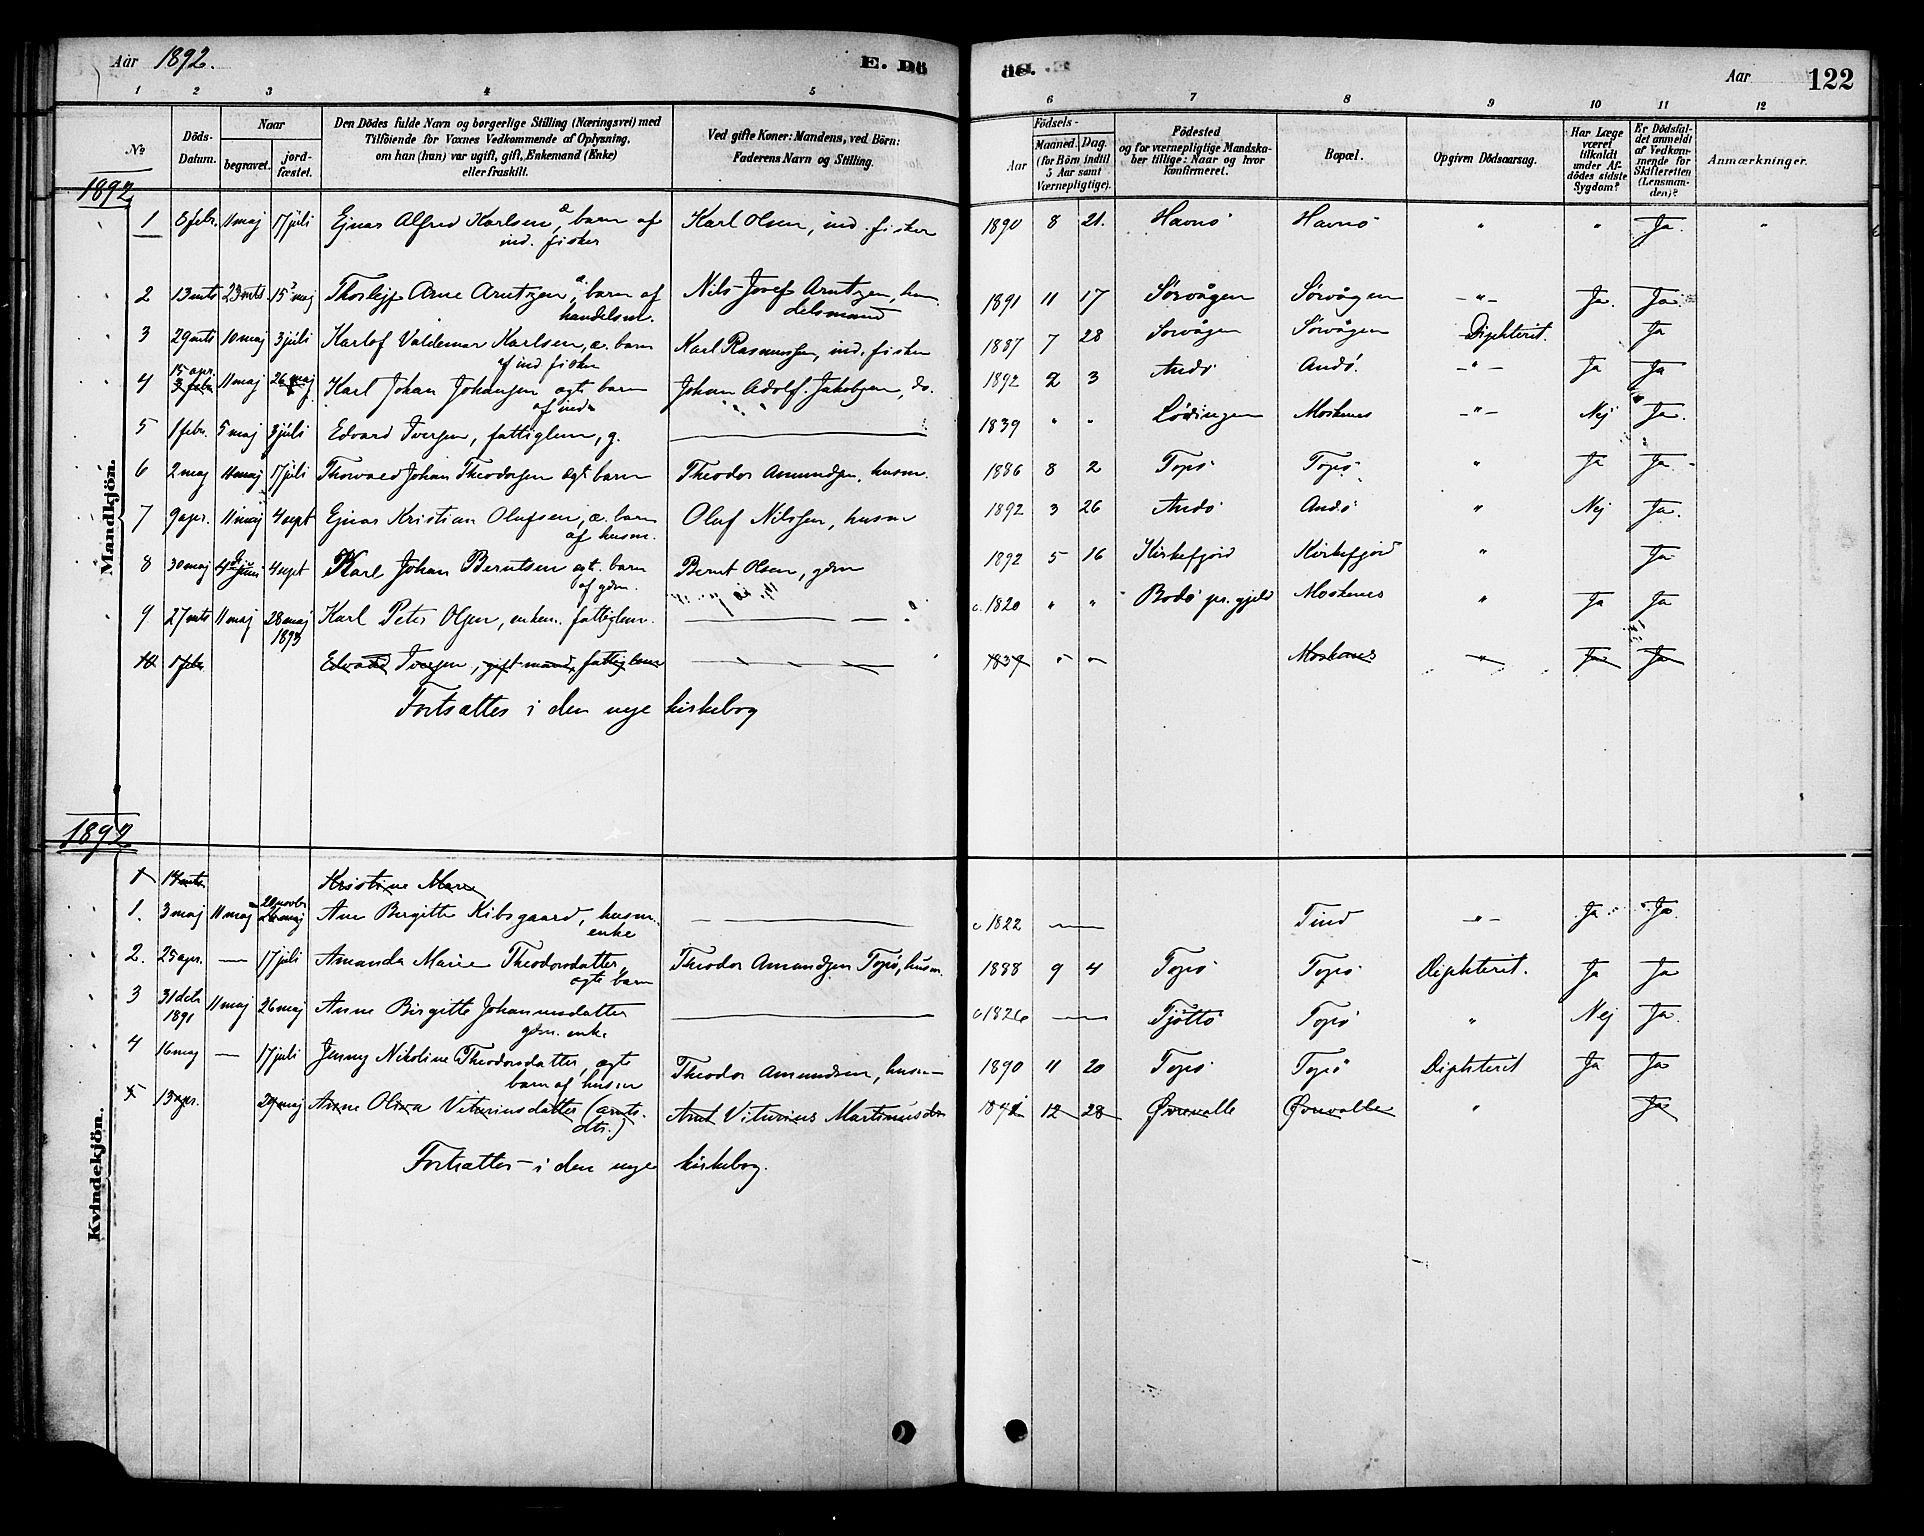 Aar 1892. E. Dö
öG. E. Aar 122
1 2 3 4 5 6 7 8 9 10 11 12
No
Döds-Datum.
Naar
begravet.
jord-fæstet.
Den Dödes fulde Navn og borgerlige Stilling (Næringsvei) med
Tilföiende for Voxnes Vedkommende af Oplysning,
om han (hun) var ugift, gift, Enkemand (Enke)
eller fraskilt.
Ved gifte Koner: Mandens, ved Börn:
Faderens Navn og Stilling.
Födsels-
Aar
Maaned. Dag.
(for Börn indtil
5 Aar samt
Værnepligtige).
Födested
og for værnepligtige Mandska-
ber tillige: Naar og hvor
konfirmeret.
Bopæl.
Opgiven Dödsaarsag.
Har Læge
været
tilkaldt
under Af-
dödes sidste
Sygdom?
Er Dödsfal-
det anmeldt
af Vedkom-
mende for
Skifteretten
(Lensman-
den)?
Anmærkninger.
Mandkjön.
1892
1 6 febr. 11 maj 17 juli Ejnar Alfred Karlsen, æ. barn af Karl Olsen, ind. fisker 1890 8 21. Havnö Havnö " " Ja "
ind. fisker
2 13 mts 23 mts 15 maj Thorleif Arne Arntzen, æ. barn af Nils Josef Arntzen, han- 1891 11 17 Sörvågen Sörvågen -"- Ja Ja
handelsm. delsmand
3 29 mts 10 maj 3 juli Karlof Valdemar Karlsen, æ. barn Karl Rasmussen, ind. fisker 1887 7 28 Sorvågen Sörvågen Diphterit. Ja
af ind fisker
15 apr.
4 3 febr 11 maj 26 maj Karl Johan Johansen ægt barn Johan Adolf Jakobsen, do. 1892 2 3 Andö Andö. -"- Ja Ja
af ind " " "
5 1 febr. 5 maj 3 juli Edvard Iversen, fattiglem, g. 1839 " " Lödingen Moskenes -"- Nej Ja
6 2 maj 11 maj 17 juli Thorvald Johan Theodorsen ægt barn Theodor Amundsen, husm. 1886 8 2 Topö Topö " Ja Ja
7 9 apr. 11 maj 4 sept Ejnar Kristian Olufsen, æ. barn Oluf Nilssen, husm 1892 3 26 Andö Andö " Nej Ja.
af husm.
8 30 maj juni 4 sept Karl Johan Berntsen ægt. barn Bernt Olsen, gdm 1892 5 16 Kirkefjord Kirkefjord " Ja
af gdm.
9 27 mts 11 maj 28 maj Karl Peter Olsen, enkem. fattiglem. c. 1820 " " Bodö pr. gjeld Moskenes " Ja Ja
1893
10 1 febr Edvard Iversen, gift mand, fattiglem 1839 " " Moskenes " Ja Ja
Fortsættes i den nye kirkebog
Kvindekjön.
1892
1 Kristine Marie
20 novbr
1. 3 maj 11 maj 26 maj Ane Birgitte Kibsgaard, husm. c 1822 Tind -"- Ja Ja
enke
2. 25 apr. — 17 juli Amanda Marie Theodorsdatter, Theodor Amundsen Topö, husm. 1888 9 4 Topö Topö Diphterit. Ja Ja
ægte barn
3 31 dcb 11 maj 26 maj Anne Birgitte Johannesdatter c 1826 Tjöttö Topö " Nej Ja
1891 gdm. enke
4 16 maj — 17 juli Jenny Nikoline Theodorsdatter, ægte Theodor Amundsen, husm 1890 11 20 Topö Topö Diphterit Ja Ja
barn af husm
5 13 apr. Anne Olina Vituriusdatter (arnts- Arnt Viturius Martinus 12 28 Övrevalle Övrevalle " Ja
dtr.)
Fortsættes i den nye kirkebog.